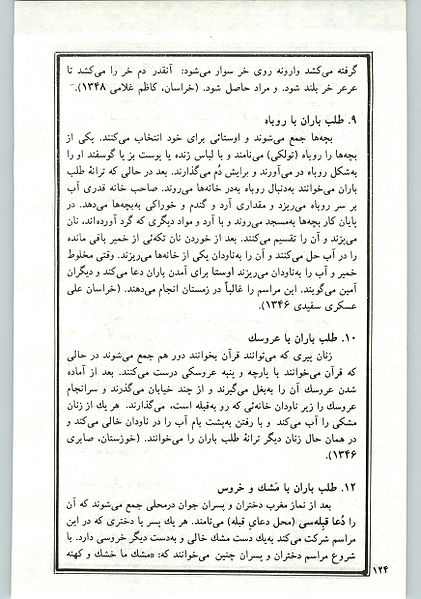 گرفته می‌کشد وارونه روی خر سوار می‌شود: آنقدر دم خر را می‌کشد تا
عرعر خر بلند شود. و مراد حاصل شود. (خراسان، کاظم غلامی ۱۳۴۸).
۹. طلب باران با روباه
بچه‌ها جمع می‌شوند و اوستائی برای خود انتخاب می‌کنند. یکی از
بچه‌ها را روباه (تولکی) می‌نامند و با لباس زنده یا پوست بز یا گوسفند او را
به‌شکل روباه در می‌آورند و برایش دُم می‌گذارند. بعد در حالی که ترانهٔ طلب
باران می‌خوانند به‌دنبال روباه به‌در خانه‌ها می‌روند. صاحب خانه قدری آب
بر سر روباه می‌ریزد و مقداری آرد و گندم و خوراکی به‌بچه‌ها می‌دهد. در
پایان کار بچه‌ها به‌مسجد می‌روند و با آرد و مواد دیگری که گرد آورده‌اند، نان
می‌پزند و آن را تقسیم می‌کنند. بعد از خوردن نان تکه‌ئی از خمیر باقی مانده
را در آب حل می‌کنند و آن را به‌ناودان یکی از خانه‌ها می‌ریزند. وقتی مخلوط
خمیر و آب را به‌ناودان می‌ریزند اوستا برای آمدن باران دعا می‌کند و دیگران
آمین می‌گویند. این مراسم را غالباً در زمستان انجام می‌دهند. (خراسان علی
عسکری سفیدی ۱۳۴۶).
۱۰. طلب باران با عروسك
زنان پیری که می‌توانند قرآن بخوانند دور هم جمع می‌شوند در حالی
که قرآن می‌خوانند با پارچه و پنبه عروسکی درست می‌کنند. بعد از آماده
شدن عروسك آن را به‌بغل می‌گیرند و از چند خیابان می‌گذرند و سرانجام
عروسك را زیر ناودان خانه‌ئی که رو به‌قبله است، می‌گذارند. هر یك از زنان
مشکی را آب می‌کند و با رفتن به‌پشت بام آب را در ناودان خالی می‌کند و
در همان حال زنان دیگر ترانهٔ طلب باران را می‌خوانند. (خوزستان، صابری
۱۳۴۶).
۱۲. طلب باران با مَشك و خروس
بعد از نماز مغرب دختران و پسران جوان درمحلی جمع می‌شوند که آن
را دُعا قبله‌سی (محل دعایِ قبله) می‌نامند. هر یك پسر یا دختری که در این
مراسم شرکت می‌کند به‌یك دست مشك خالی و به‌دست دیگر خروسی دارد. با
شروع مراسم دختران و پسران چنین می‌خوانند که: «مشك ما خشك و کهنه
۱۲۴